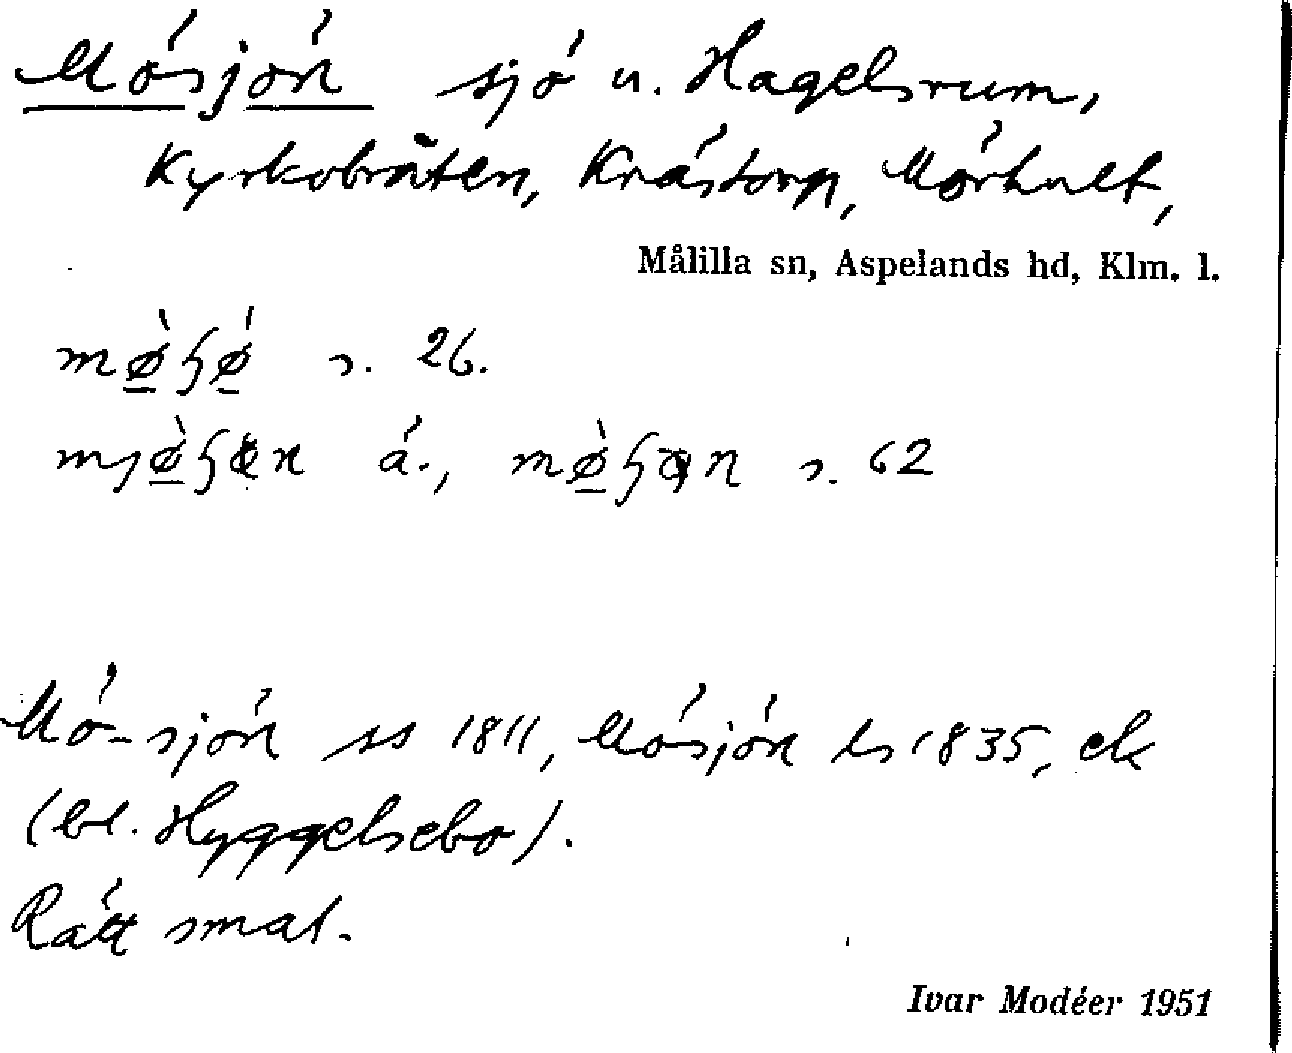 Mösjön sjö u. Hagelsrum,
Kyrkobråten, Kråstorp, Mörhult,
Målilla sn, Aspelands hd, Klm. l.
s. 26.
ä., s. 62
Mö-sjön ss 1811, Mösjön ls 1835, ek
(bl. Hyggelsebo).
Rätt smal.
Ivar Modéer 1951